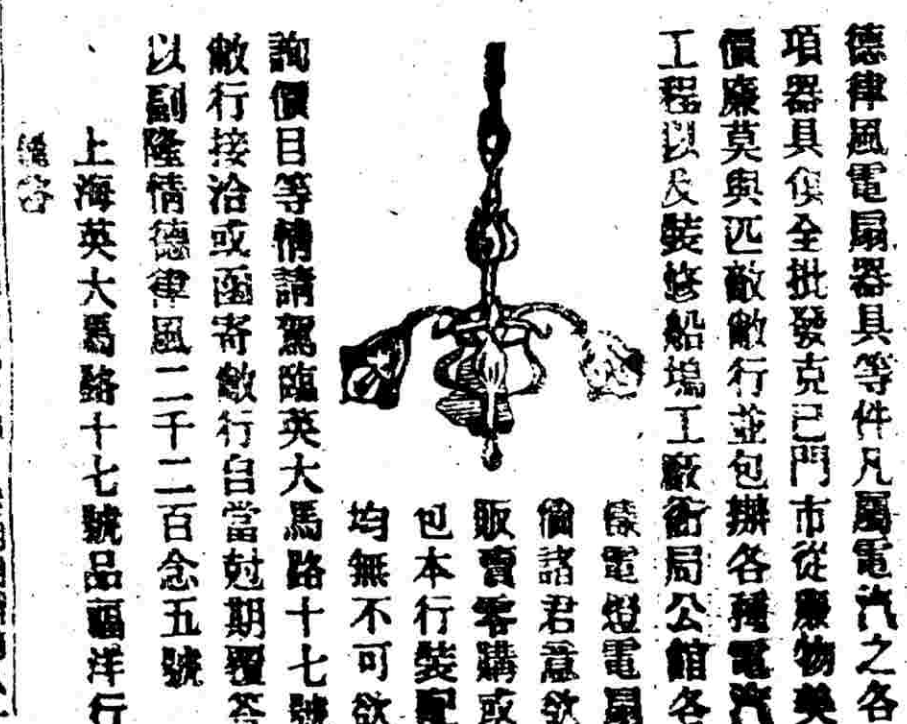 德律風電扇器具等件凡屬電汽之各
項器具俱全批發克己門市從廉物美
價廉莫與匹敵敝行並包辦各種電汽
工程以及裝修船塢工廠衙局公館各
電燈電扇
倘諸君意欲
販賣零購或
包本行裝配
均無不可欲
詢價目等情請駕臨英大馬路十七號
敝行接洽或函寄敝行自當尅期覆答
以副隆情德律風二千二百念五號
上海英大馬路十七號品福洋行